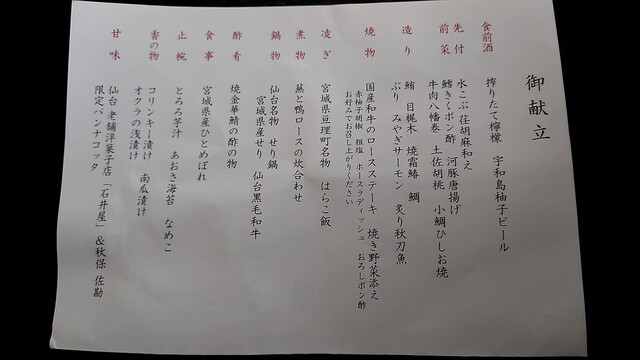 御献立
食前酒 搾りたて檸檬 宇和島柚子ビール
先付 水こぶ荏胡麻和え
前菜 鱈きくポン酢 河豚唐揚げ
牛肉八幡巻 土佐胡桃 小鯛ひしお焼
造り 鮪 目梶木 焼霜鰆 鯛
ぶり みやぎサーモン 炙り秋刀魚
焼物 国産和牛のロースステーキ 焼き野菜添え
赤柚子胡椒 粗塩 ホースラディッシュ おろしポン酢
お好みでお召し上がりください
凌ぎ 宮城県亘理町名物 はらこ飯
煮物 蕪と鴨ロースの炊合わせ
鍋物 仙台名物 せり鍋
宮城県産せり 仙台黒毛和牛
酢肴 焼金華鯖の酢の物
食事 宮城県産ひとめぼれ
止椀 とろろ芋汁 あおさ海苔 なめこ
香の物 コリンキー漬け 南瓜漬け
オクラの浅漬け
甘味 仙台 老舗洋菓子店「石井屋」&秋保 佐勘
限定パンナコッタ